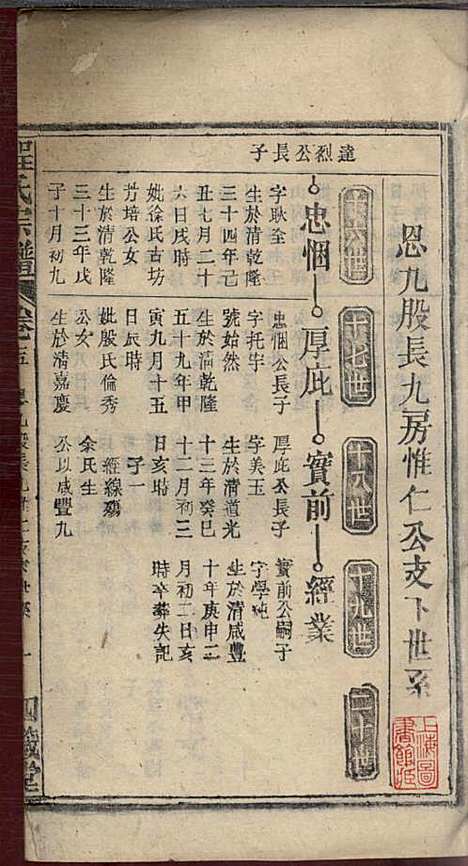 恩九股長九房惟仁公支下世系
十六世
十七世
十八世
十九世
二十世
達烈公長子
忠悃
厚庇
實前
經業
字耿全
生於清乾隆
三十四年己
丑七月二十
六日戌時
妣徐氏古坊
芳培公女
生於清乾隆
三十三年戊
子十月初九
忠悃公長子
字托宇
號始然
生於清乾隆
五十九年甲
寅九月十五
日辰時
妣殷氏倫秀
公女
生於清嘉慶
厚庇公長子
字美玉
生於清道光
十三年癸巳
十二月初三
日亥時
子一
經線殤
余氏生
公以咸豐九
實前公嗣子
字學純
生於清咸豐
十年庚申二
月初二日亥
時卒葬失記
氏宗譜
卷五
恩九股長九房惟仁公支下世系
一
四箴堂
上海圖
書館藏